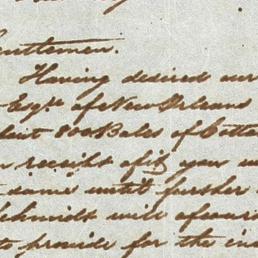 Gentlemen.
Having desired our
Esqre of New Orleans
800 Bales of Cotto
receipt of it you w
same until further
Schmidt will of cours
to provide for the in